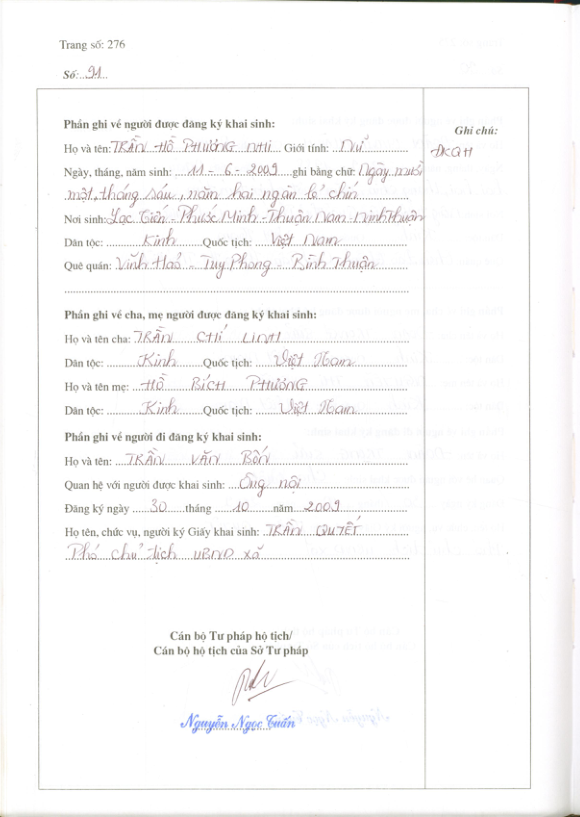 Trang số: 276
Số: 91
Phần ghi về người được đăng ký khai sinh:
Ghi chú:
Họ và tên: TRẦN HỒ PHƯƠNG NHI Giới tính: Nữ
ĐKQH
Ngày, tháng, năm sinh: 11 - 6 - 2009 ghi bằng chữ: Ngày mười
một, tháng sáu, năm hai ngàn lẻ chín
Nơi sinh: Lạc Tiến - Phước Minh - Thuận Nam - Ninh Thuận
Dân tộc: Kinh Quốc tịch: Việt Nam
Quê quán: Vĩnh Hảo - Tuy Phong - Bình Thuận
Phần ghi về cha, mẹ người được đăng ký khai sinh:
Họ và tên cha: TRẦN CHÍ LINH
Dân tộc: Kinh Quốc tịch: Việt Nam
Họ và tên mẹ: HỒ BÍCH PHƯƠNG
Dân tộc: Kinh Quốc tịch: Việt Nam
Phần ghi về người đi đăng ký khai sinh:
Họ và tên: TRẦN VĂN BỐN
Quan hệ với người được khai sinh: Ông nội
Đăng ký ngày 30 tháng 10 năm 2009
Họ tên, chức vụ, người ký Giấy khai sinh: TRẦN QUYẾT
Phó chủ tịch UBND xã
Cán bộ Tư pháp hộ tịch/
Cán bộ hộ tịch của Sở Tư pháp
Nguyễn Ngọc Tuấn